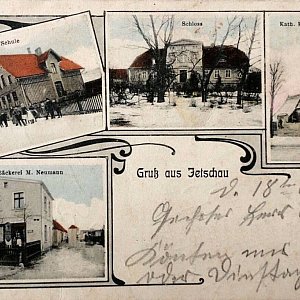 Schule
Schloss
Kath. K
Bäckerei M. Neumann
Gruß aus Jetschau
d. 18
Geehrter Herr
Könten
oder Dinstag